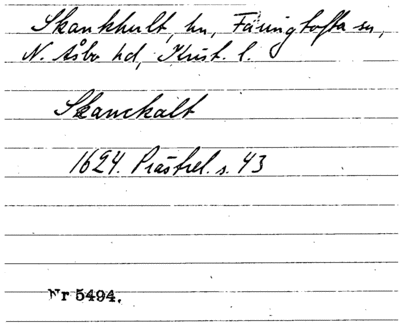 Skankhult, hn, Färingtofta sn,
N. Åsbo hd, Krist. l.
Skanckalt
1624. Prästrel. s. 43
Nr 5494.